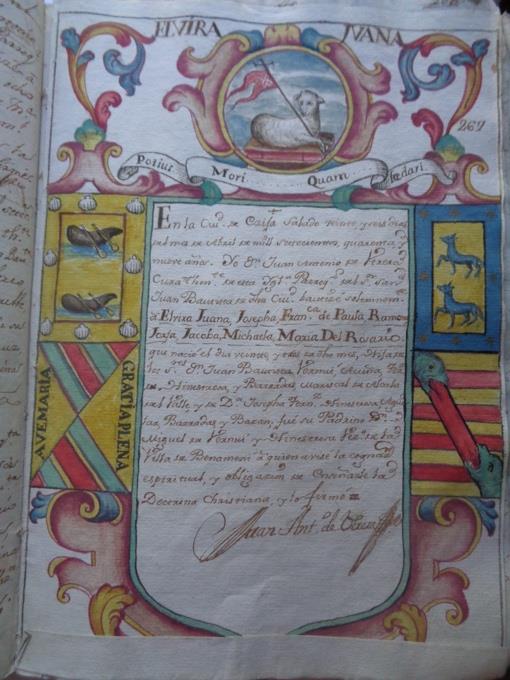 ELVIRA
JUANA
267
Potius Mori Quam Fœdari
En la Ciud. de Sabado veinte, y seis dias
del mes de Abril de mill setecientos, quarenta, y
nueve años. Yo Dn. Juan Antonio de
Cura de esta Iglª Parroql. del Sr. San
Juan Bauptista de dha Ciud. bauticé solemnemte.
à Elvira Juana, Josepha, Franca. de Paula Ramona
Jacoba, Michaela, Maria Del Rosario
que nacio el dia veinte, y de dho mes, Hija de
los Sres. Dn. Juan Bauptista
Hinestrosa, y Barradas Mariscal de
del Valle, y de Da. Josepha Fern. Hinestrosa
Barradas y Bazan, fue su Padrino Dn.
Miguel de y Hinestrosa de la
Villa de Benameji à quien avisé la cognacion
espiritual, y obligacion de Enseñarle la
Doctrina Christiana, y lo firmé
Juan Antº. de
AVE MARIA
GRATIA PLENA